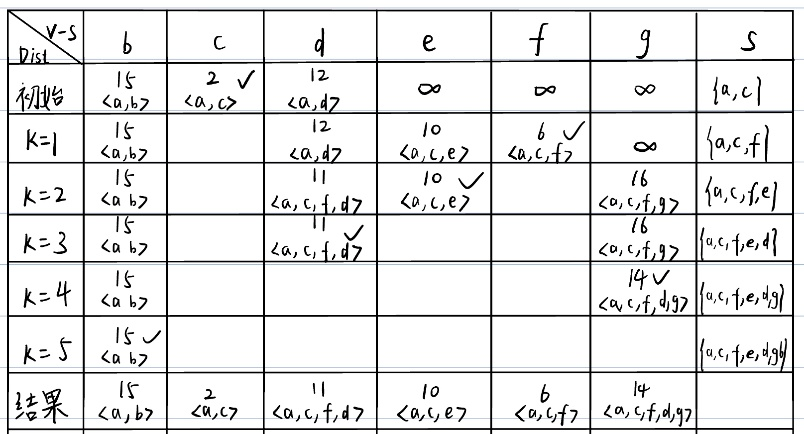 V-S
Dist b c d e f g S
初始 15 <a,b> 2 ✓ <a,c> 12 <a,d> ∞ ∞ ∞ {a,c}
K=1 15 <a,b> 12 <a,d> 10 <a,c,e> 6 ✓ <a,c,f> ∞ {a,c,f}
K=2 15 <a,b> 11 <a,c,f,d> 10 ✓ <a,c,e> 16 <a,c,f,g> {a,c,f,e}
K=3 15 <a b> 11 ✓ <a,c,f,d> 16 <a,c,f,g> {a,c,f,e,d}
K=4 15 <a b> 14 ✓ <a,c,f,d,g> {a,c,f,e,d,g}
K=5 15 ✓ <a b> {a,c,f,e,d,gb}
结果 15 <a,b> 2 <a,c> 11 <a,c,f,d> 10 <a,c,e> 6 <a,c,f> 14 <a,c,f,d,g>